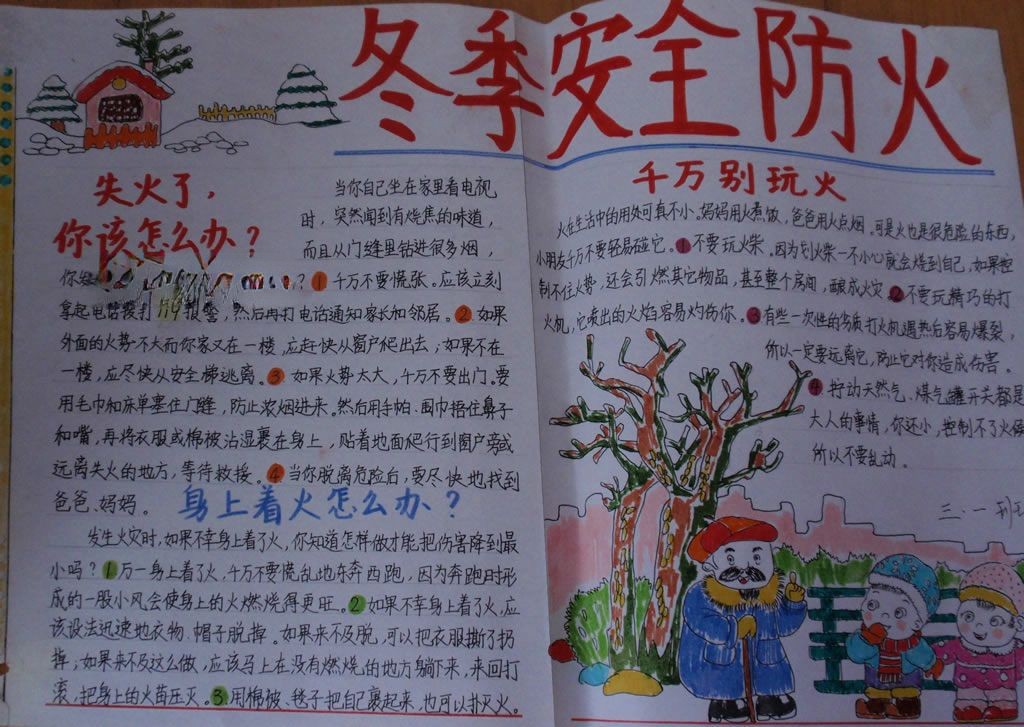 冬季安全防火
失火了，
你该怎么办？
当你自己坐在家里看电视
时，突然闻到有烧焦的味道，
而且从门缝里钻进很多烟，
你
？1千万不要慌张。应该立刻
拿起电话拨打119报警，然后再打电话通知家长和邻居。2如果
外面的火势不大而你家又在一楼，应赶快从窗户爬出去；如果不在
一楼，应尽快从安全梯逃离。3如果火势太大，千万不要出门。要
用毛巾和床单塞住门缝，防止浓烟进来。然后用手帕、围巾捂住鼻子
和嘴，再将衣服或棉被沾湿裹在身上，贴着地面爬行到窗户旁或
远离失火的地方，等待救援。4当你脱离危险后，要尽快地找到
爸爸、妈妈。
身上着火怎么办？
发生火灾时，如果不幸身上着了火，你知道怎样做才能把伤害降到最
小吗？1万一身上着了火，千万不要慌乱地东奔西跑，因为奔跑时形
成的一股小风会使身上的火燃烧得更旺。2如果不幸身上着了火，应
该设法迅速地衣物、帽子脱掉。如果来不及脱，可以把衣服撕了扔
掉；如果来不及这么做，应该马上在没有燃烧的地方躺下来，来回打
滚，把身上的火苗压灭。3用棉被、毯子把自己裹起来，也可以扑灭火。
千万别玩火
火在生活中的用处可真不小。妈妈用火煮饭，爸爸用火点烟。可是火也是很危险的东西，
小朋友千万不要轻易碰它。1不要玩火柴。因为划火柴一不小心就会烧到自己，如果控
制不住火势，还会引燃其它物品，甚至整个房间，酿成火灾2不要玩精巧的打
火机，它喷出的火焰容易灼伤你。3有些一次性的劣质打火机遇热后容易爆裂，
所以一定要远离它，防止它对你造成伤害。
4拧动天然气、煤气罐开关都是
大人的事情，你还小，控制不了火候
所以不要乱动。
三·一